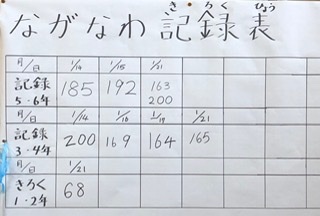 ながなわ記録表
きろくひょう
月/日 1/14 1/15 1/21
記録 5・6年 185 192 163 200
月/日 1/14 1/18 1/19 1/21
記録 3・4年 200 169 164 165
月/日 1/21
きろく 1・2年 68